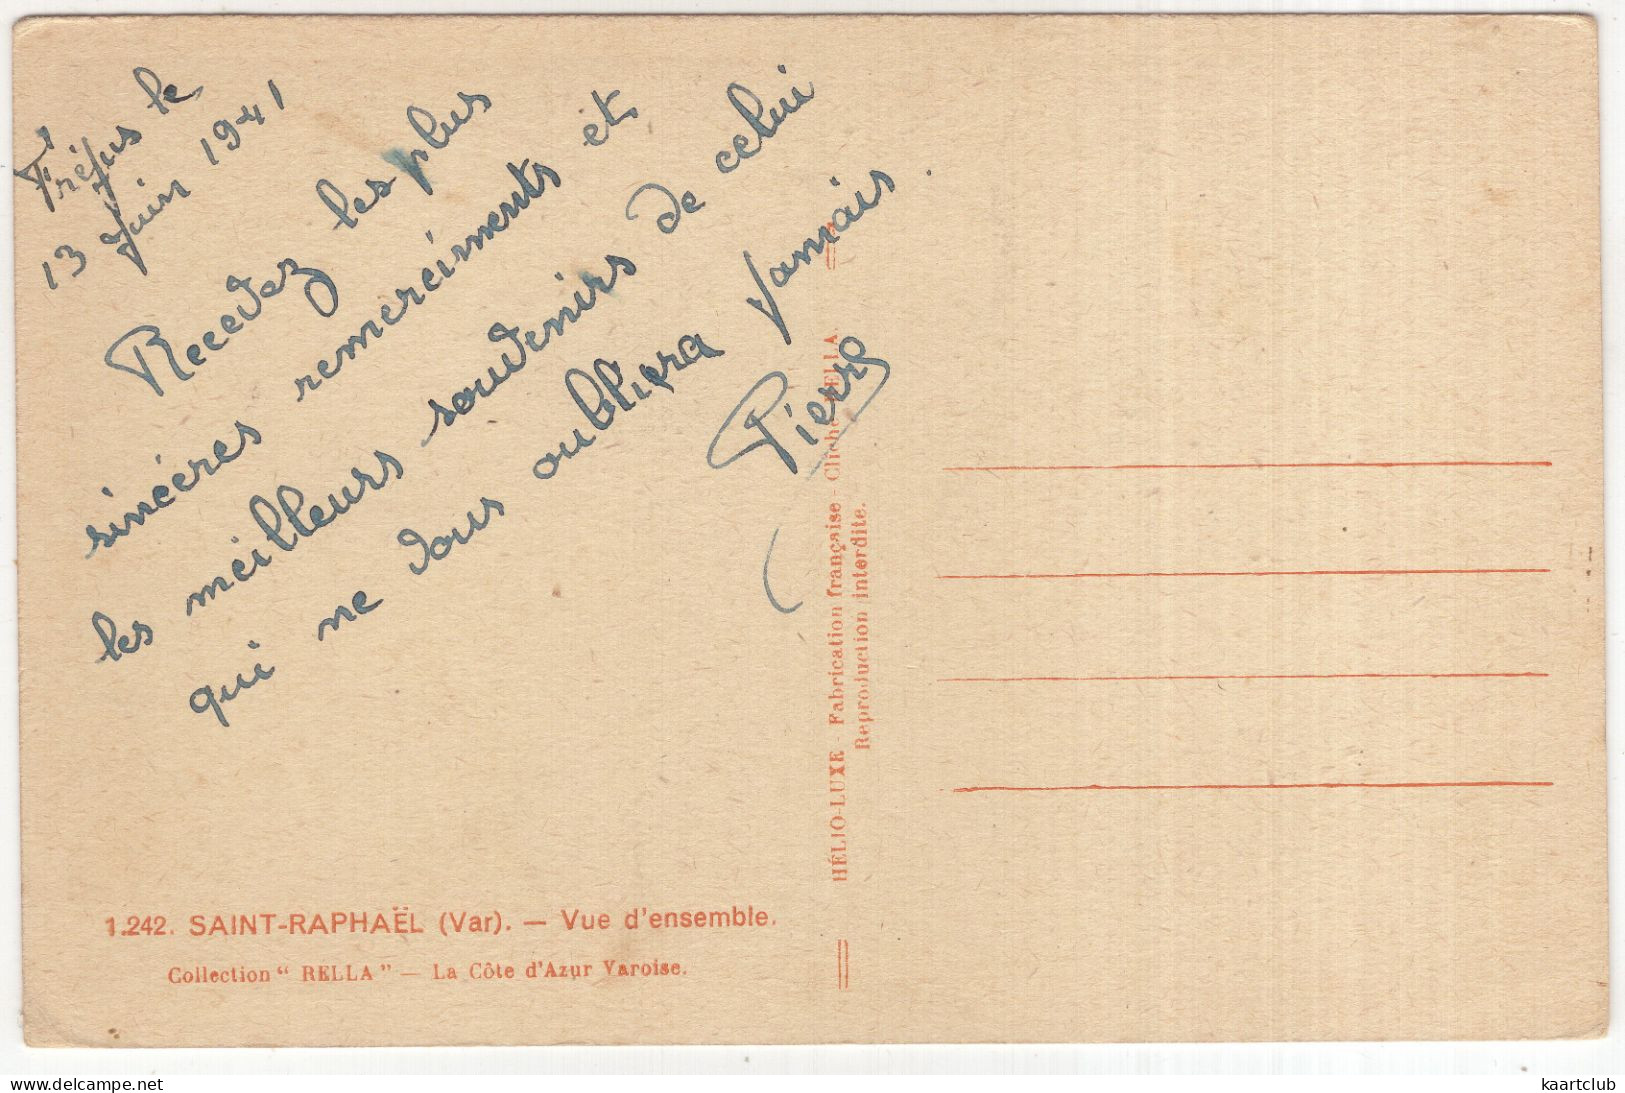 Fréjus le
13 Juin 1941
Recevez les plus
sincéres remerciments et
les meilleurs souvenirs de celui
qui ne vous oubliera Jamais.
Pierre
HÉLIO-LUXE - Fabrication française - Cliché RELLA.
Reproduction interdite.
1.242. SAINT-RAPHAËL (Var). — Vue d'ensemble.
Collection " RELLA " — La Côte d'Azur Varoise.
www.delcampe.net
kaartclub